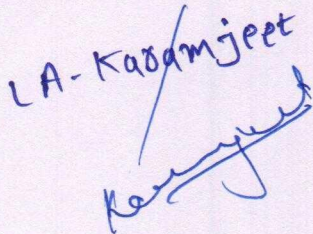 LA-Karamjeet
Karamjeet